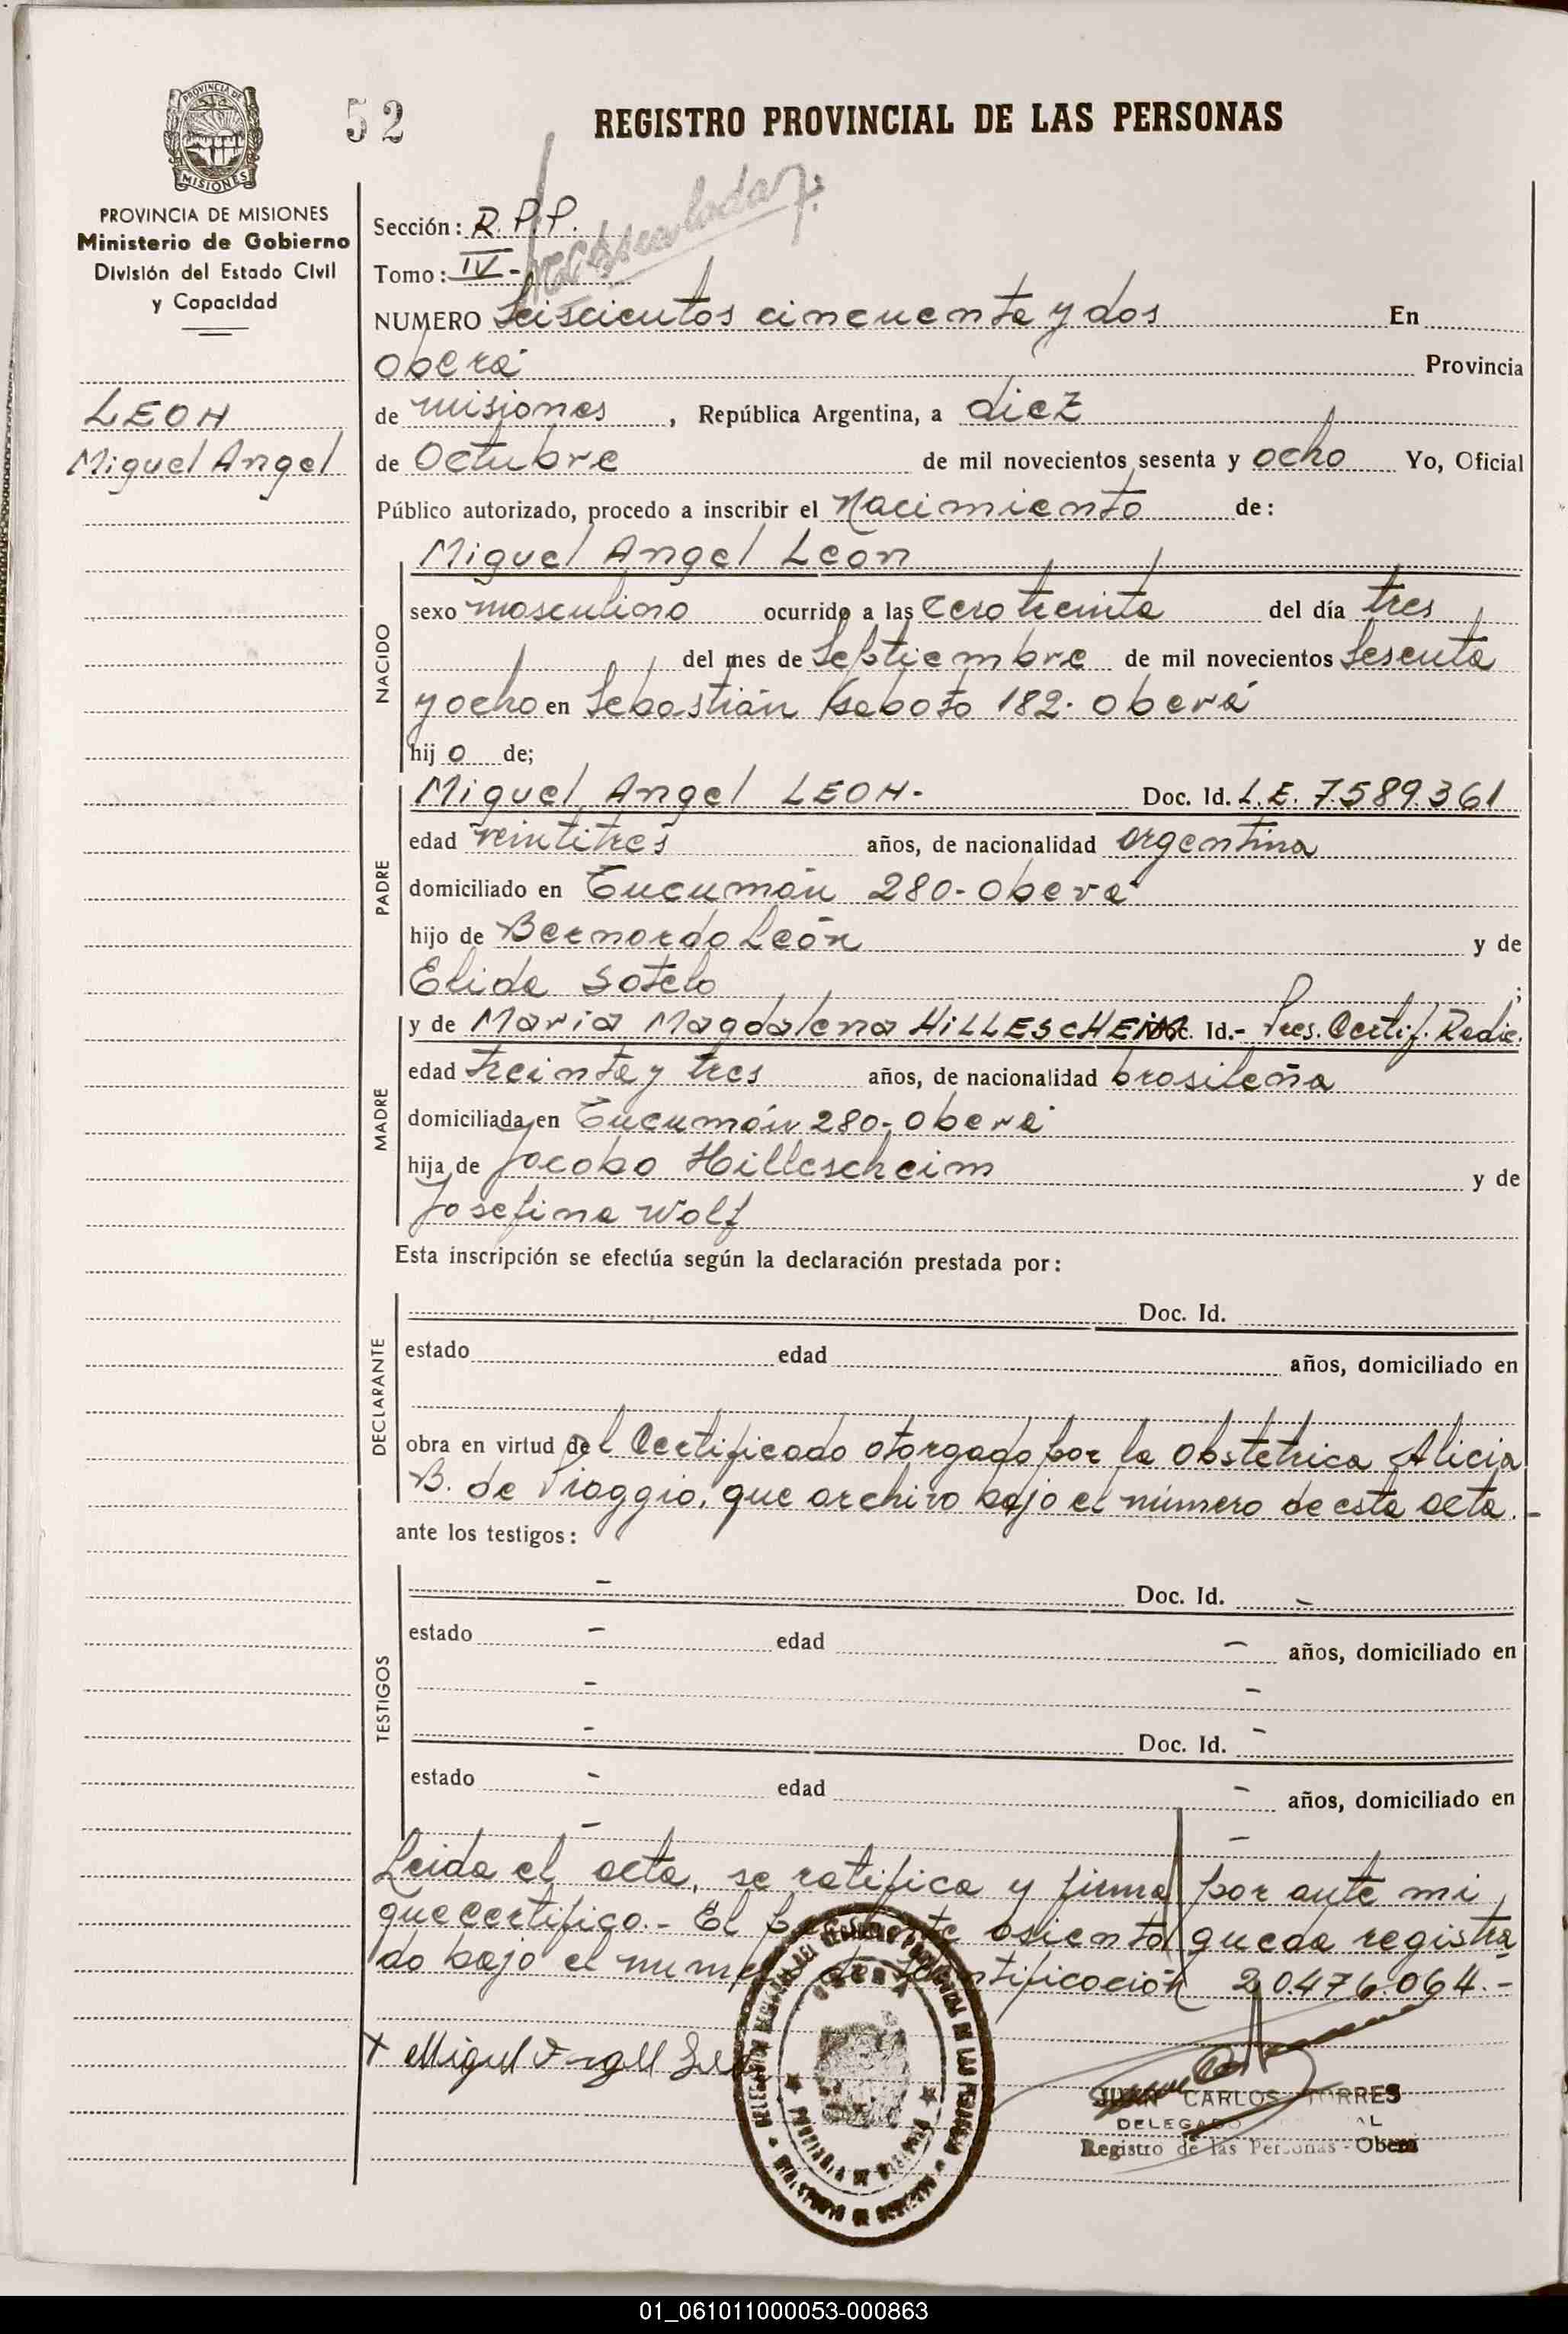 52
REGISTRO PROVINCIAL DE LAS PERSONAS
PROVINCIA DE
MISIONES
PROVINCIA DE MISIONES
Ministerio de Gobierno
División del Estado Civil
y Capacidad
LEON
Miguel Angel
Sección: R.P.P.
Tomo: IV-
NUMERO Seiscientos cincuenta y dos En
Oberá Provincia
de misiones, República Argentina, a diez
de Octubre de mil novecientos sesenta y ocho Yo, Oficial
Público autorizado, procedo a inscribir el Nacimiento de:
NACIDO
Miguel Angel Leon
sexo masculino ocurrido a las cero treinta del día tres
del mes de Septiembre de mil novecientos sesenta
y ocho en Sebastián Gaboto 182. Oberá
hijo de;
PADRE
Miguel Angel LEON.- Doc. Id. L.E. 7.589.361
edad veintitres años, de nacionalidad argentina
domiciliado en Tucumán 280-Oberá
hijo de Bernardo León y de
Elida Sotelo ;
MADRE
y de Maria Magdalena HILLESCHEIM Doc. Id.- Pres. Certif. Radic.
edad treinta y tres años, de nacionalidad brasileña
domiciliada en Tucumán 280-, Oberá
hija de Jacobo Hillescheim y de
Josefina Wolf
Esta inscripción se efectúa según la declaración prestada por:
DECLARANTE
Doc. Id.
estado edad años, domiciliado en
obra en virtud del Certificado otorgado por la Obstetrica Alicia
B. de Viaggio, que archivo bajo el número de esta acta.-
ante los testigos:
TESTIGOS
- Doc. Id. -
estado - edad - años, domiciliado en
- -
- Doc. Id. -
estado - edad - años, domiciliado en
- -
Leida el acta, se ratifica y firma por ante mi
que certifico.- El presente asiento queda registra
do bajo el numero de identificación 20.476.064.-
x Miguel Angel Leon
JUAN CARLOS TORRES
DELEGADO
Registro de las Personas - Oberá
OBERA
PROVINCIA DE MISIONES
01_061011000053-000863